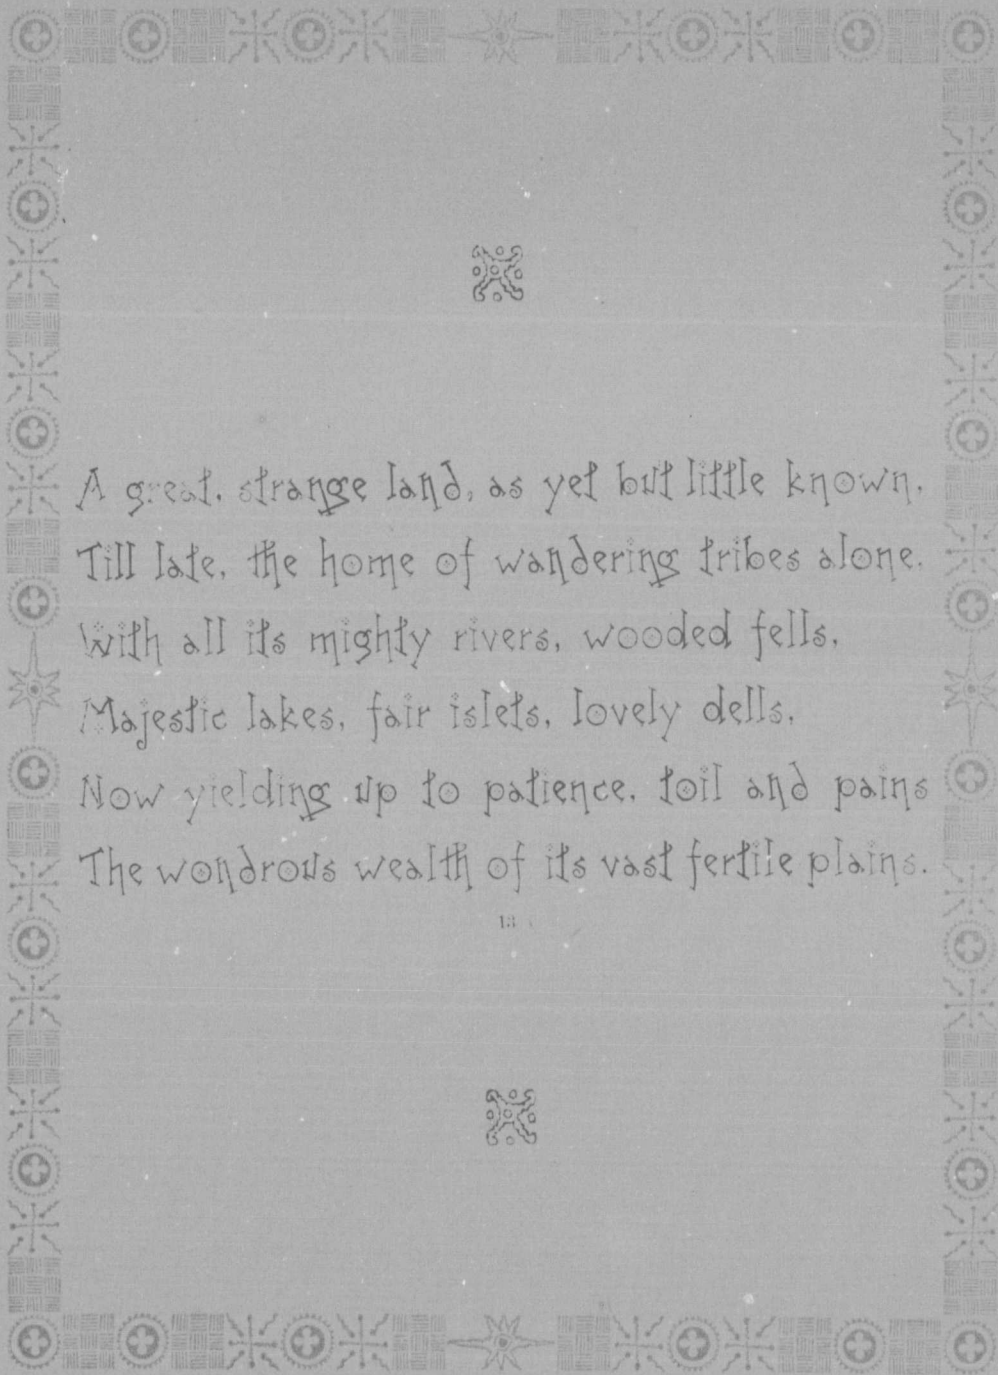 A great, strange land, as yet but little known,
Till late, the home of wandering tribes alone.
With all its mighty rivers, wooded fells,
Majestic lakes, fair islets, lovely dells,
Now yielding up to patience, toil and pains
The wondrous wealth of its vast fertile plains.
13